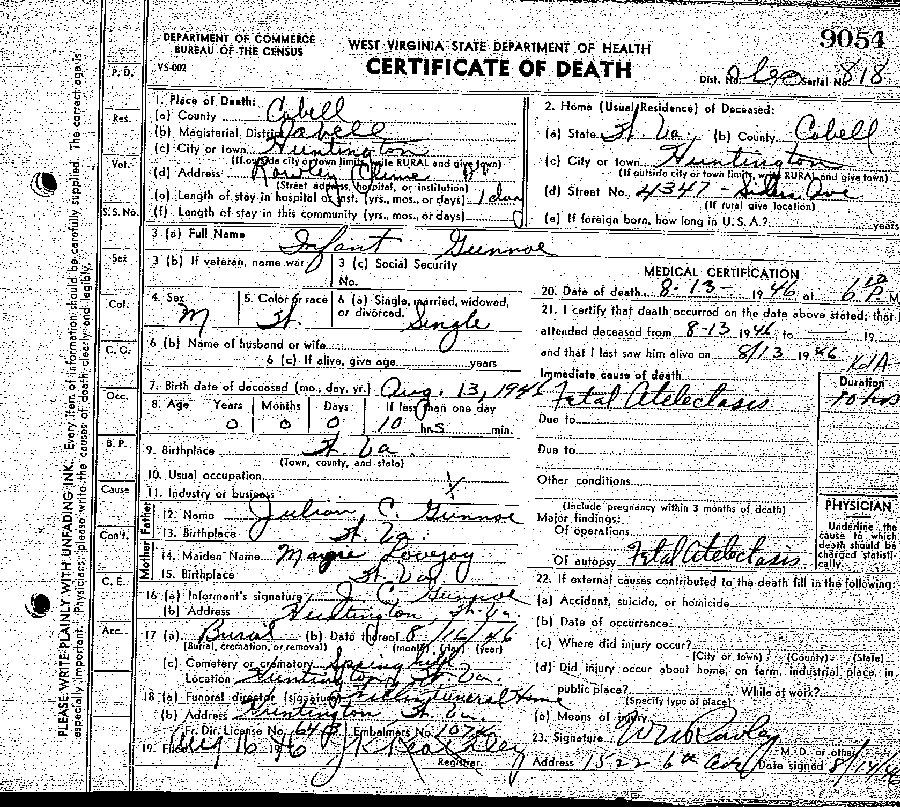 9054
DEPARTMENT OF COMMERCE
BUREAU OF THE CENSUS
VS-002
WEST VIRGINIA STATE DEPARTMENT OF HEALTH
CERTIFICATE OF DEATH
Dist. No. Serial No. 818
1. Place of Death:
(a) County Cabell
(b) Magisterial District Cabell
(c) City or town Huntington
(If outside city or town limits, write RURAL and give town)
(d) Address Rawley Clinic
(Street address, hospital, or institution)
(e) Length of stay in hospital or inst. (yrs., mos., or days) 1 day
(f) Length of stay in this community (yrs., mos., or days)
2. Home (Usual Residence) of Deceased:
(a) State W. Va. (b) County Cabell
(c) City or town Huntington
(If outside city or town limits, write RURAL and give town)
(d) Street No. 4347 - Ave
(If rural give location)
(e) If foreign born, how long in U.S.A.? years
3 (a) Full Name Infant Gunnoe
3 (b) If veteran, name war
3 (c) Social Security
No.
4. Sex M
5. Color or race W.
6 (a) Single, married, widowed,
or divorced. Single
6 (b) Name of husband or wife
6 (c) If alive, give age years
7. Birth date of deceased (mo., day, yr.) Aug. 13, 1946
8. Age Years Months Days If less than one day
0 0 0 10 hrs min.
9. Birthplace W. Va.
(Town, county, and state)
10. Usual occupation
11. Industry or business
Father
12. Name Julian C. Gunnoe
13. Birthplace W. Va.
Mother
14. Maiden Name Lovejoy
15. Birthplace W. Va.
16 (a) Informant's signature J. C. Gunnoe
(b) Address Huntington, W. Va.
17 (a) Burial (b) Date thereof 8/16/46
(Burial, cremation, or removal) (month) (day) (year)
(c) Cemetery or crematory Spring Hill
Location Huntington, W. Va.
18 (a) Funeral director (signature) Funeral Home
(b) Address Huntington W. Va.
Fr. Dir. License No. Embalmers No.
19. Filed Aug 16 1946
Registrar.
MEDICAL CERTIFICATION
20. Date of death 8-13- 1946 at M
21. I certify that death occurred on the date above stated; that I
attended deceased from 8-13 1946 to 19
and that I last saw him alive on 8/13 1946
Immediate cause of death
Fetal Atelectasis
Duration
10 hrs
Due to
Due to
Other conditions
(Include pregnancy within 3 months of death)
Major findings:
Of operations
Of autopsy Fetal Atelectasis
PHYSICIAN
Underline
the cause
to which
death should be
charged statisti-
cally.
22. If external causes contributed to the death fill in the following:
(a) Accident, suicide, or homicide
(b) Date of occurrence
(c) Where did injury occur?
(City or town) (County) (State)
(d) Did injury occur about home, on farm, industrial place, in
public place? While of work?
(Specify type of place)
(e) Means of injury
23. Signature Rawley
M.D. or other
Address 1522 6th Ave Date signed 8/14/46
P. D.
Res.
Vol.
S. S. No.
Sex
Col.
C. C.
Occ.
B. P.
Cause
Con't.
C. E.
Acc.
PLEASE WRITE PLAINLY WITH UNFADING INK. Every item of information should be carefully supplied. The correct age is
especially important. Physicians: please write the causes of death clearly and legibly.